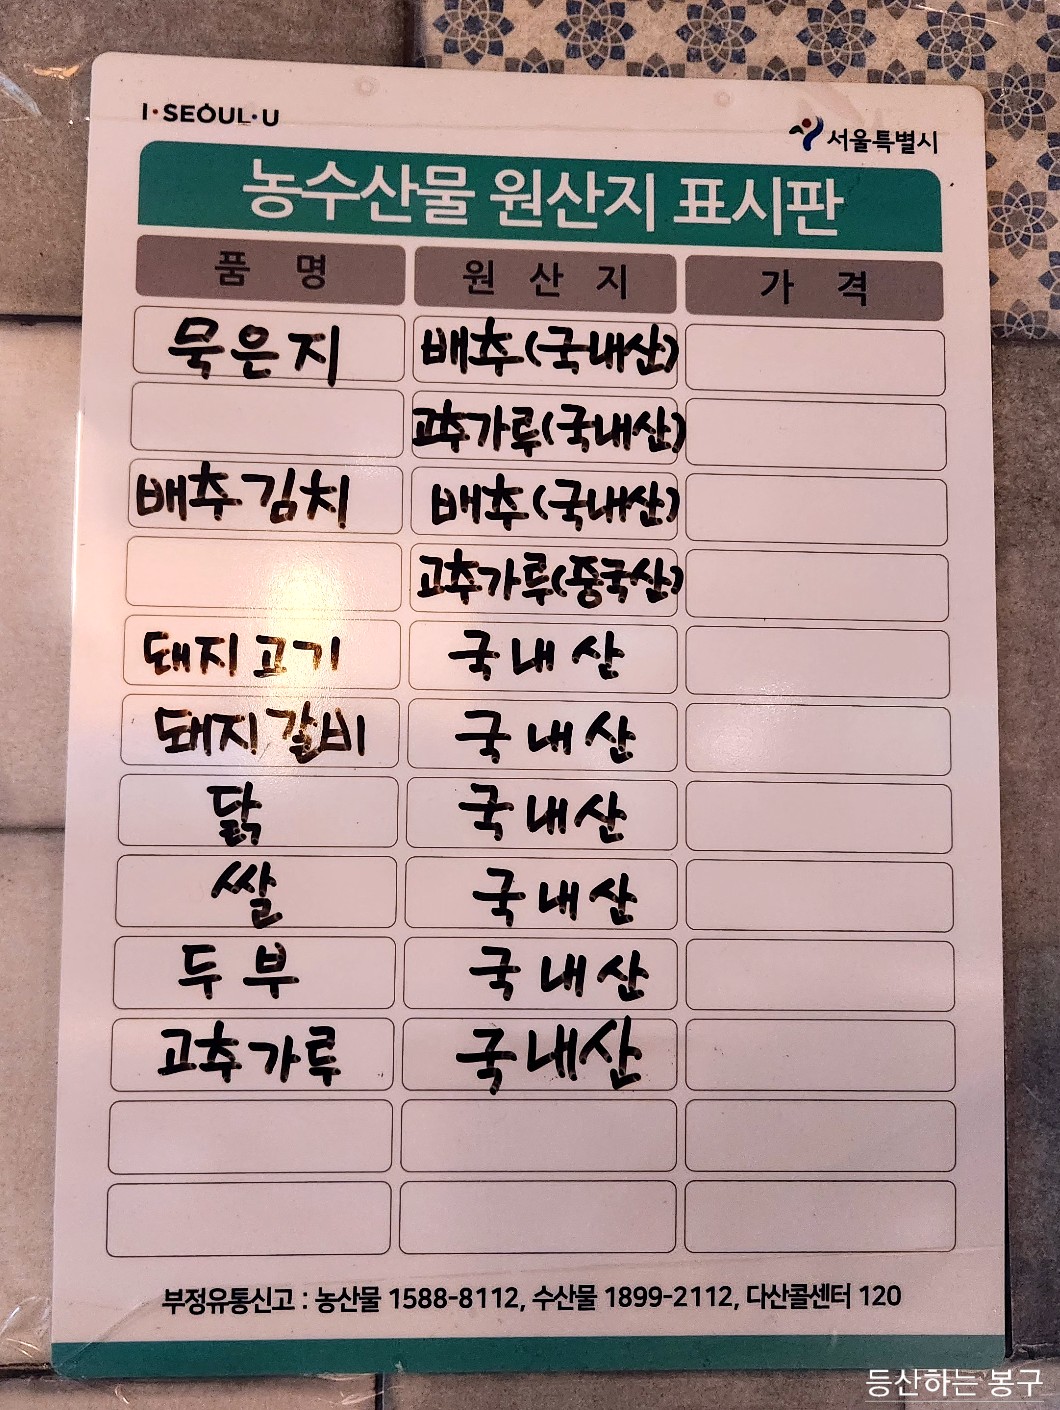 I·SEOUL·U
서울특별시
농수산물 원산지 표시판
품 명 원 산 지 가 격
묵은지 배추(국내산)
고추가루(국내산)
배추김치 배추(국내산)
고추가루(중국산)
돼지고기 국내산
돼지갈비 국내산
닭 국내산
쌀 국내산
두부 국내산
고추가루 국내산
부정유통신고 : 농산물 1588-8112, 수산물 1899-2112, 다산콜센터 120
등산하는 봉구